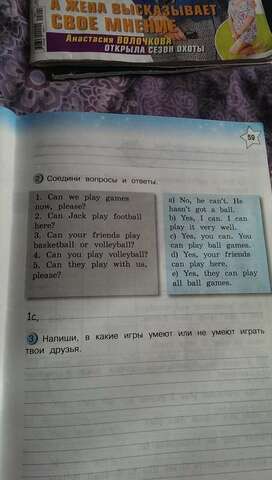 А ЖЕНА ВЫСКАЗЫВАЕТ
СВОЕ МНЕНИЕ
Анастасия ВОЛОЧКОВА
ОТКРЫЛА СЕЗОН ОХОТЫ
59
2 Соедини вопросы и ответы.
1. Can we play games
now, please?
2. Can Jack play football
here?
3. Can your friends play
basketball or volleyball?
4. Can you play volleyball?
5. Can they play with us,
please?
a) No, he can't. He
hasn't got a ball.
b) Yes, I can. I can
play it very well.
c) Yes, you can. You
can play ball games.
d) Yes, your friends
can play here.
e) Yes, they can play
all ball games.
1c,
3 Напиши, в какие игры умеют или не умеют играть
твои друзья.